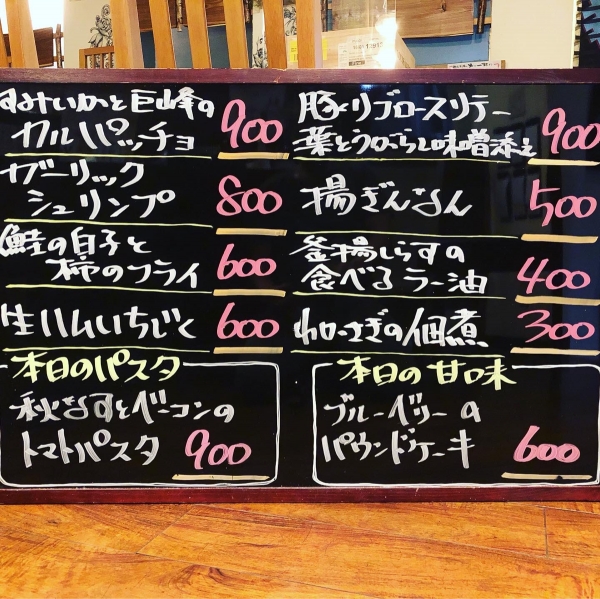 すみいかと巨峰の
カルパッチョ 900
ガーリック
シュリンプ 800
鮭の白子と
柿のフライ 600
生ハムいちじく 600
本日のパスタ
秋なすとベーコンの
トマトパスタ 900
豚リブロースソテー
葉とうがらし味噌添え 900
揚ぎんなん 500
釜揚しらすの
食べるラー油 400
わかさぎの佃煮 300
本日の甘味
ブルーベリーの
パウンドケーキ 600